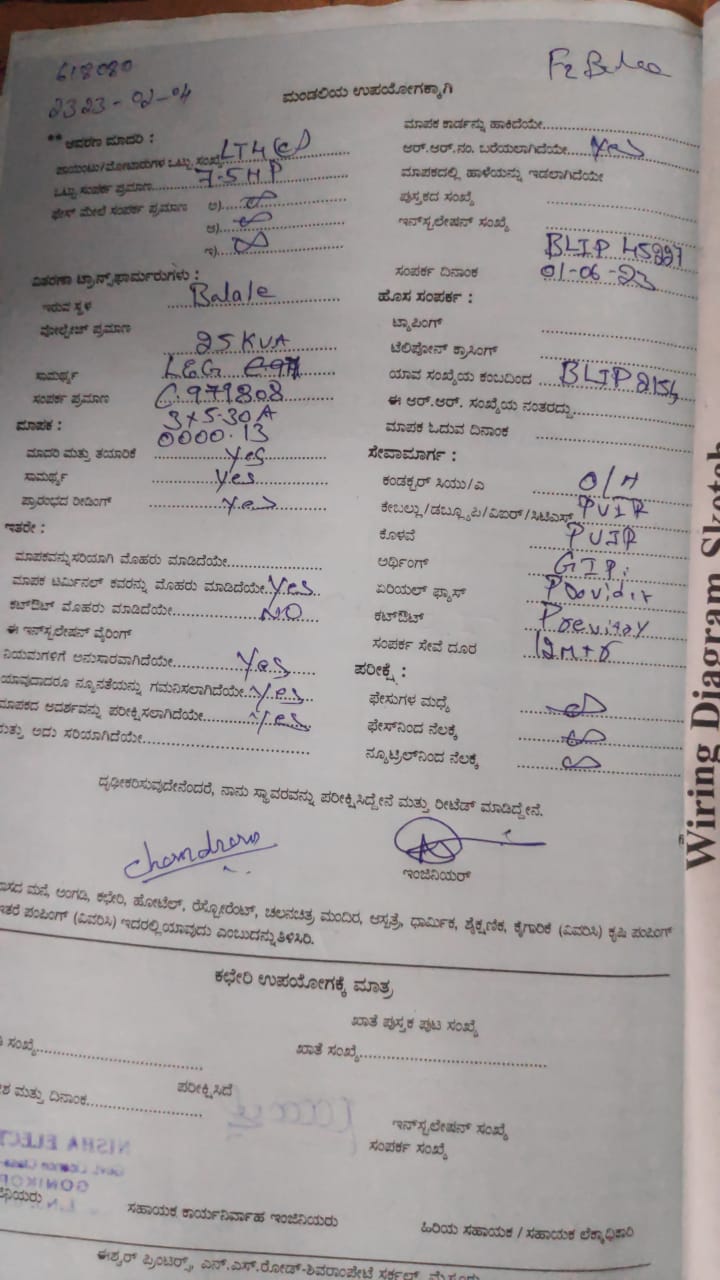 618080
2323-02-04
F2 Balea
ಮಂಡಲಿಯ ಉಪಯೋಗಕ್ಕಾಗಿ
** ಆವರಣ ಮಾದರಿ :
ಪಾಯಿಂಟು/ಮೋಟಾರುಗಳ ಒಟ್ಟು ಸಂಖ್ಯೆ LT4
ಒಟ್ಟು ಸಂಪರ್ಕ ಪ್ರಮಾಣ 7.5HP
ಫೇಸ್ ಮೇಲೆ ಸಂಪರ್ಕ ಪ್ರಮಾಣ ಅ)
ಆ)
ಇ)
ವಿತರಣಾ ಟ್ರಾನ್ಸ್‌ಫಾರ್ಮರುಗಳು :
ಇರುವ ಸ್ಥಳ Balale
ವೋಲ್ಟೇಜ್ ಪ್ರಮಾಣ
25 KVA
ಸಾಮರ್ಥ್ಯ L&G
ಸಂಪರ್ಕ ಪ್ರಮಾಣ C.979808
ಮಾಪಕ : 3x5-30A
0000.13
ಮಾದರಿ ಮತ್ತು ತಯಾರಿಕೆ Yes
ಸಾಮರ್ಥ್ಯ Yes
ಪ್ರಾರಂಭದ ರೀಡಿಂಗ್ Yes
ಇತರೇ :
ಮಾಪಕವನ್ನು ಸರಿಯಾಗಿ ಮೊಹರು ಮಾಡಿದೆಯೇ
ಮಾಪಕ ಟರ್ಮಿನಲ್ ಕವರನ್ನು ಮೊಹರು ಮಾಡಿದೆಯೇ Yes
ಕಟ್‌ಔಟ್ ಮೊಹರು ಮಾಡಿದೆಯೇ NO
ಈ ಇನ್‌ಸ್ಟಲೇಷನ್ ವೈರಿಂಗ್
ನಿಯಮಗಳಿಗೆ ಅನುಸಾರವಾಗಿದೆಯೇ Yes
ಯಾವುದಾದರೂ ನ್ಯೂನತೆಯನ್ನು ಗಮನಿಸಲಾಗಿದೆಯೇ Yes
ಮಾಪಕದ ಆವರ್ಶವನ್ನು ಪರೀಕ್ಷಿಸಲಾಗಿದೆಯೇ Yes
ಮತ್ತು ಅದು ಸರಿಯಾಗಿದೆಯೇ
ಮಾಪಕ ಕಾರ್ಡನ್ನು ಹಾಕಿದೆಯೇ
ಆರ್.ಆರ್.ನಂ. ಬರೆಯಲಾಗಿದೆಯೇ Yes
ಮಾಪಕದಲ್ಲಿ ಹಾಳೆಯನ್ನು ಇಡಲಾಗಿದೆಯೇ
ಪುಸ್ತಕದ ಸಂಖ್ಯೆ
ಇನ್‌ಸ್ಟಲೇಷನ್ ಸಂಖ್ಯೆ
BLIP 45227
ಸಂಪರ್ಕ ದಿನಾಂಕ 01-06-23
ಹೊಸ ಸಂಪರ್ಕ :
ಟ್ಯಾಪಿಂಗ್
ಟೆಲಿಫೋನ್ ಕ್ರಾಸಿಂಗ್
ಯಾವ ಸಂಖ್ಯೆಯ ಕಂಬದಿಂದ BLIP 2154
ಈ ಆರ್.ಆರ್. ಸಂಖ್ಯೆಯ ನಂತರದ್ದು
ಮಾಪಕ ಓದುವ ದಿನಾಂಕ
ಸೇವಾಮಾರ್ಗ :
ಕಂಡಕ್ಟರ್ ಸಿಯು/ಎ O/H
ಕೇಬಲ್ಲು/ಡಬ್ಲ್ಯೂಪಿ/ವಿಐರ್/ಸಿಟಿಎಸ್ PVIR
ಕೊಳವೆ PVIR
ಅರ್ಥಿಂಗ್ GIP.
ಏರಿಯಲ್ ಫ್ಯಾಸ್ Providit
ಕಟ್‌ಔಟ್
ಸಂಪರ್ಕ ಸೇವೆ ದೂರ 12Mtr
ಪರೀಕ್ಷೆ :
ಫೇಸುಗಳ ಮಧ್ಯೆ
ಫೇಸ್‌ನಿಂದ ನೆಲಕ್ಕೆ
ನ್ಯೂಟ್ರಿಲ್‌ನಿಂದ ನೆಲಕ್ಕೆ
ದೃಢೀಕರಿಸುವುದೇನೆಂದರೆ, ನಾನು ಸ್ಥಾವರವನ್ನು ಪರೀಕ್ಷಿಸಿದ್ದೇನೆ ಮತ್ತು ರೀಟೆಡ್ ಮಾಡಿದ್ದೇನೆ.
ಇಂಜಿನಿಯರ್
ವಾಸದ ಮನೆ, ಅಂಗಡಿ, ಕಛೇರಿ, ಹೋಟೆಲ್, ರೆಸ್ಟೋರೆಂಟ್, ಚಲನಚಿತ್ರ ಮಂದಿರ, ಆಸ್ಪತ್ರೆ, ಧಾರ್ಮಿಕ, ಶೈಕ್ಷಣಿಕ, ಕೈಗಾರಿಕೆ (ವಿವರಿಸಿ) ಕೃಷಿ ಪಂಪಿಂಗ್
ಇತರೆ ಪಂಪಿಂಗ್ (ವಿವರಿಸಿ) ಇದರಲ್ಲಿ ಯಾವುದು ಎಂಬುದನ್ನು ತಿಳಿಸಿರಿ.
ಕಛೇರಿ ಉಪಯೋಗಕ್ಕೆ ಮಾತ್ರ
ಖಾತೆ ಪುಸ್ತಕ ಪುಟ ಸಂಖ್ಯೆ
ಸಂಖ್ಯೆ
ಖಾತೆ ಸಂಖ್ಯೆ
ಪರೀಕ್ಷಿಸಿದೆ
ಮತ್ತು ದಿನಾಂಕ
ಇನ್‌ಸ್ಟಲೇಷನ್ ಸಂಖ್ಯೆ
ಸಂಪರ್ಕ ಸಂಖ್ಯೆ
NISHA ELECT
ಸಹಾಯಕ ಕಾರ್ಯನಿರ್ವಾಹ ಇಂಜಿನಿಯರು
ಹಿರಿಯ ಸಹಾಯಕ / ಸಹಾಯಕ ಲೆಕ್ಕಾಧಿಕಾರಿ
ಈಶ್ವರ್ ಪ್ರಿಂಟರ್ಸ್, ಎನ್.ಎಸ್.ರೋಡ್-ಶಿವರಾಂಪೇಟೆ ಸರ್ಕಲ್, ಮೈಸೂರು
Wiring Diagram Sketch